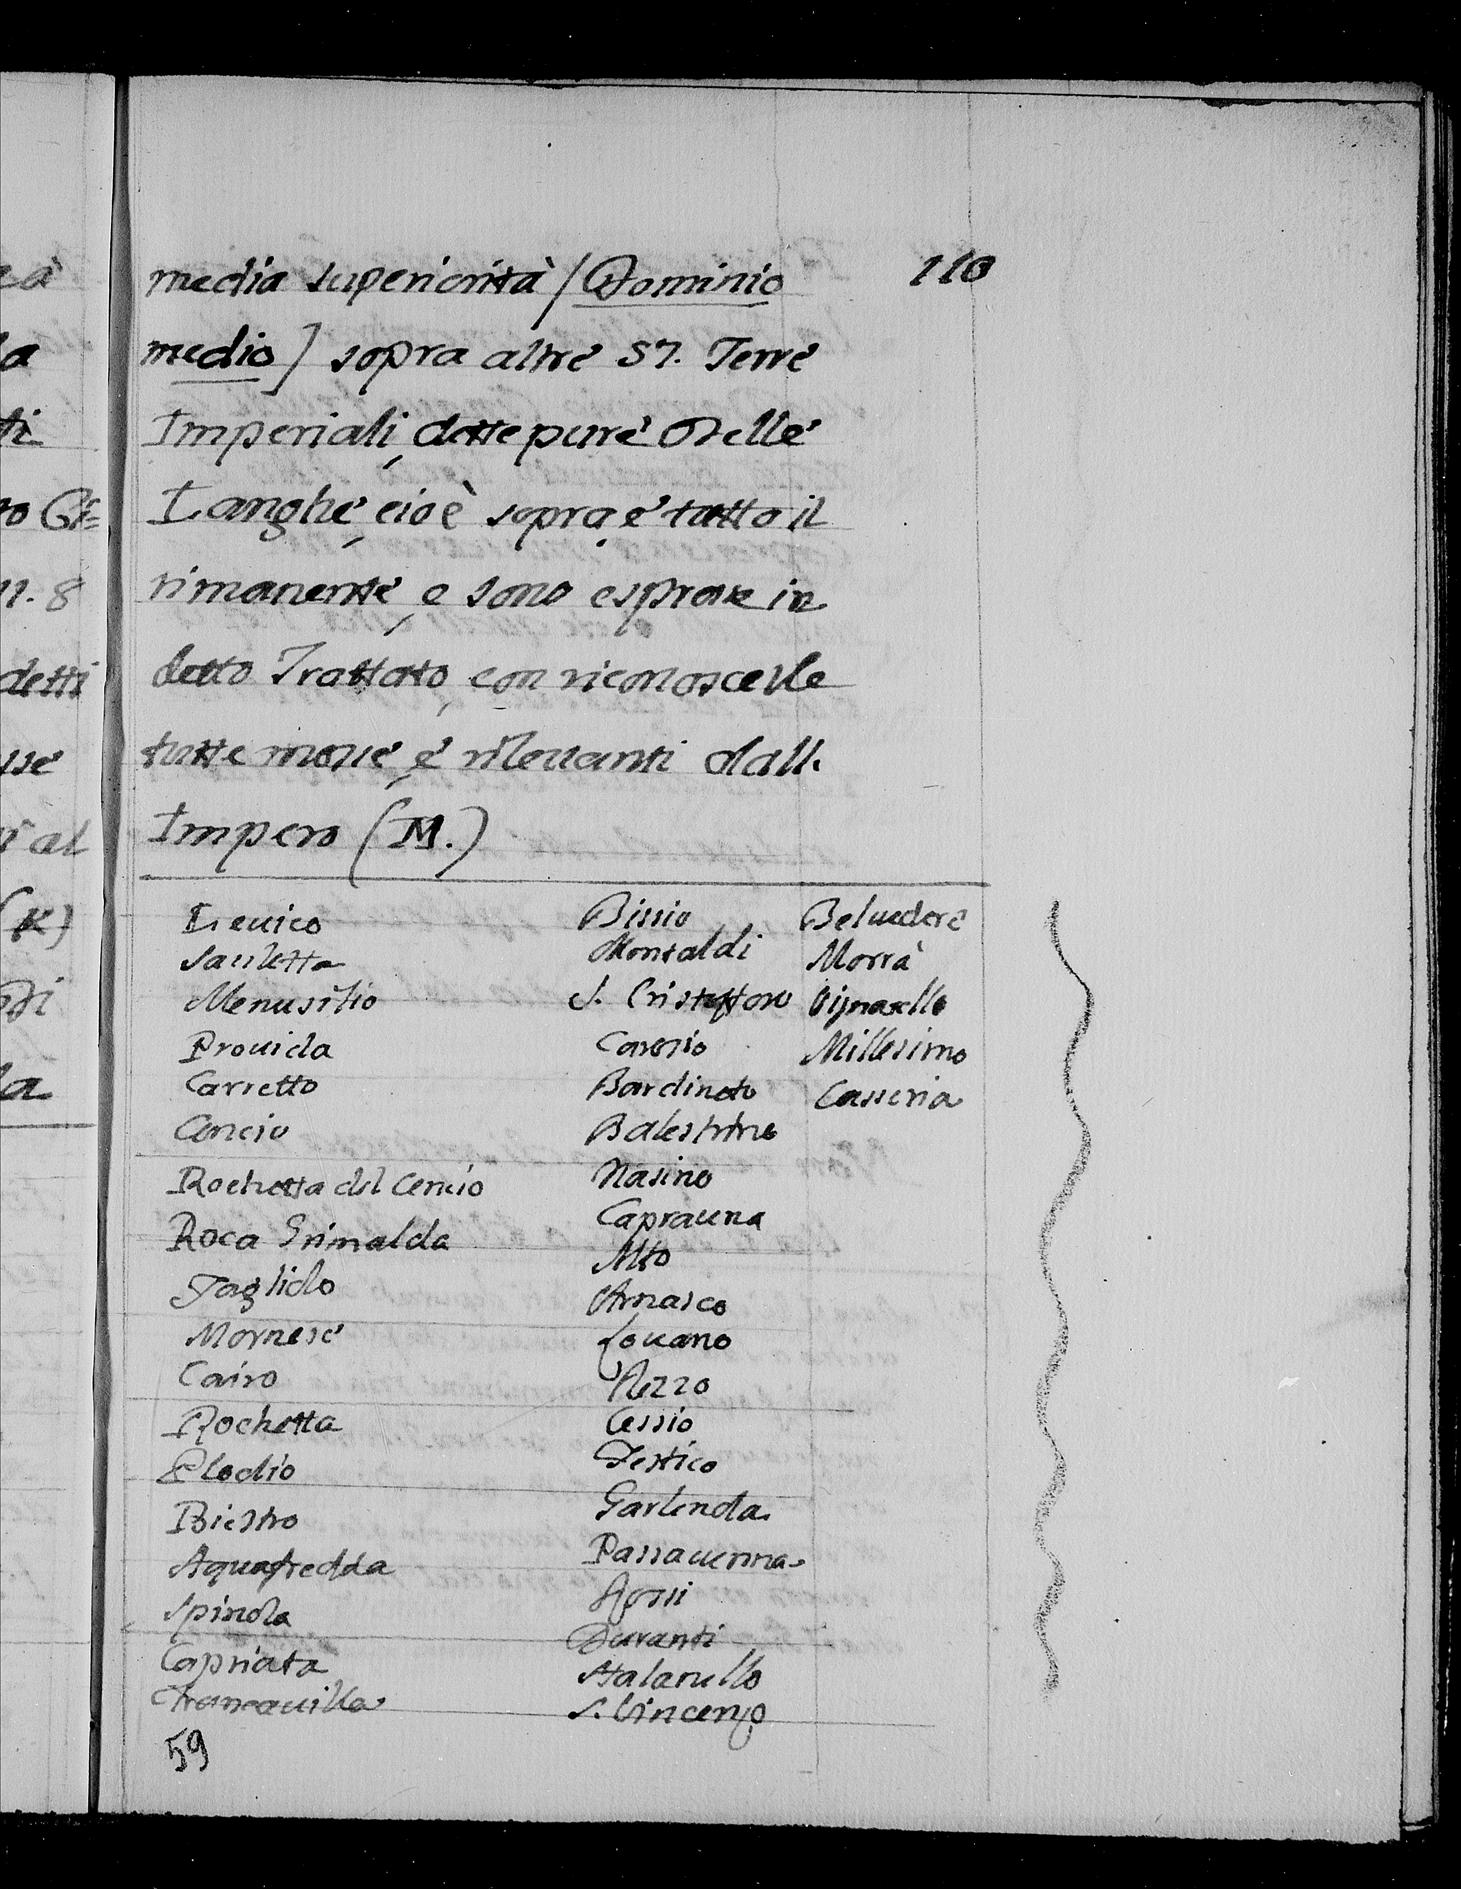 110
media superiorità [Dominio
medio] sopra altre 57. Terre
Imperiali, dette pure Delle
Langhe, cioè sopra e tutto il
rimanente, e sono espresse in
detto Trattato, con riconoscerle
tutte mosse, e rileuanti dall.
Impero (M.)
Leuico
Sauletta
Menusilio
Prouida
Carretto
Cencio
Rochetta del Cencio
Roca Grimalda
Tagliolo
Mornese
Cairo
Rochetta
Plodio
Biestro
Aquafredda
Spinola
Capriata
Francauilla
Bissio
Montaldi
S. Cristofforo
Carosio
Bardineto
Balestrino
Nasino
Caprauna
Alto
Arnasco
Louano
Rezzo
Cessio
Testico
Garlenda
Passauenna
Rossi
Duranti
Stalanello
S. Vincenzo
Beluedere
Morrà
Millesimo
Casseria
59
eà
la
ti
ro Ge=
n. 8
detti
sse
al
(K)
di
la